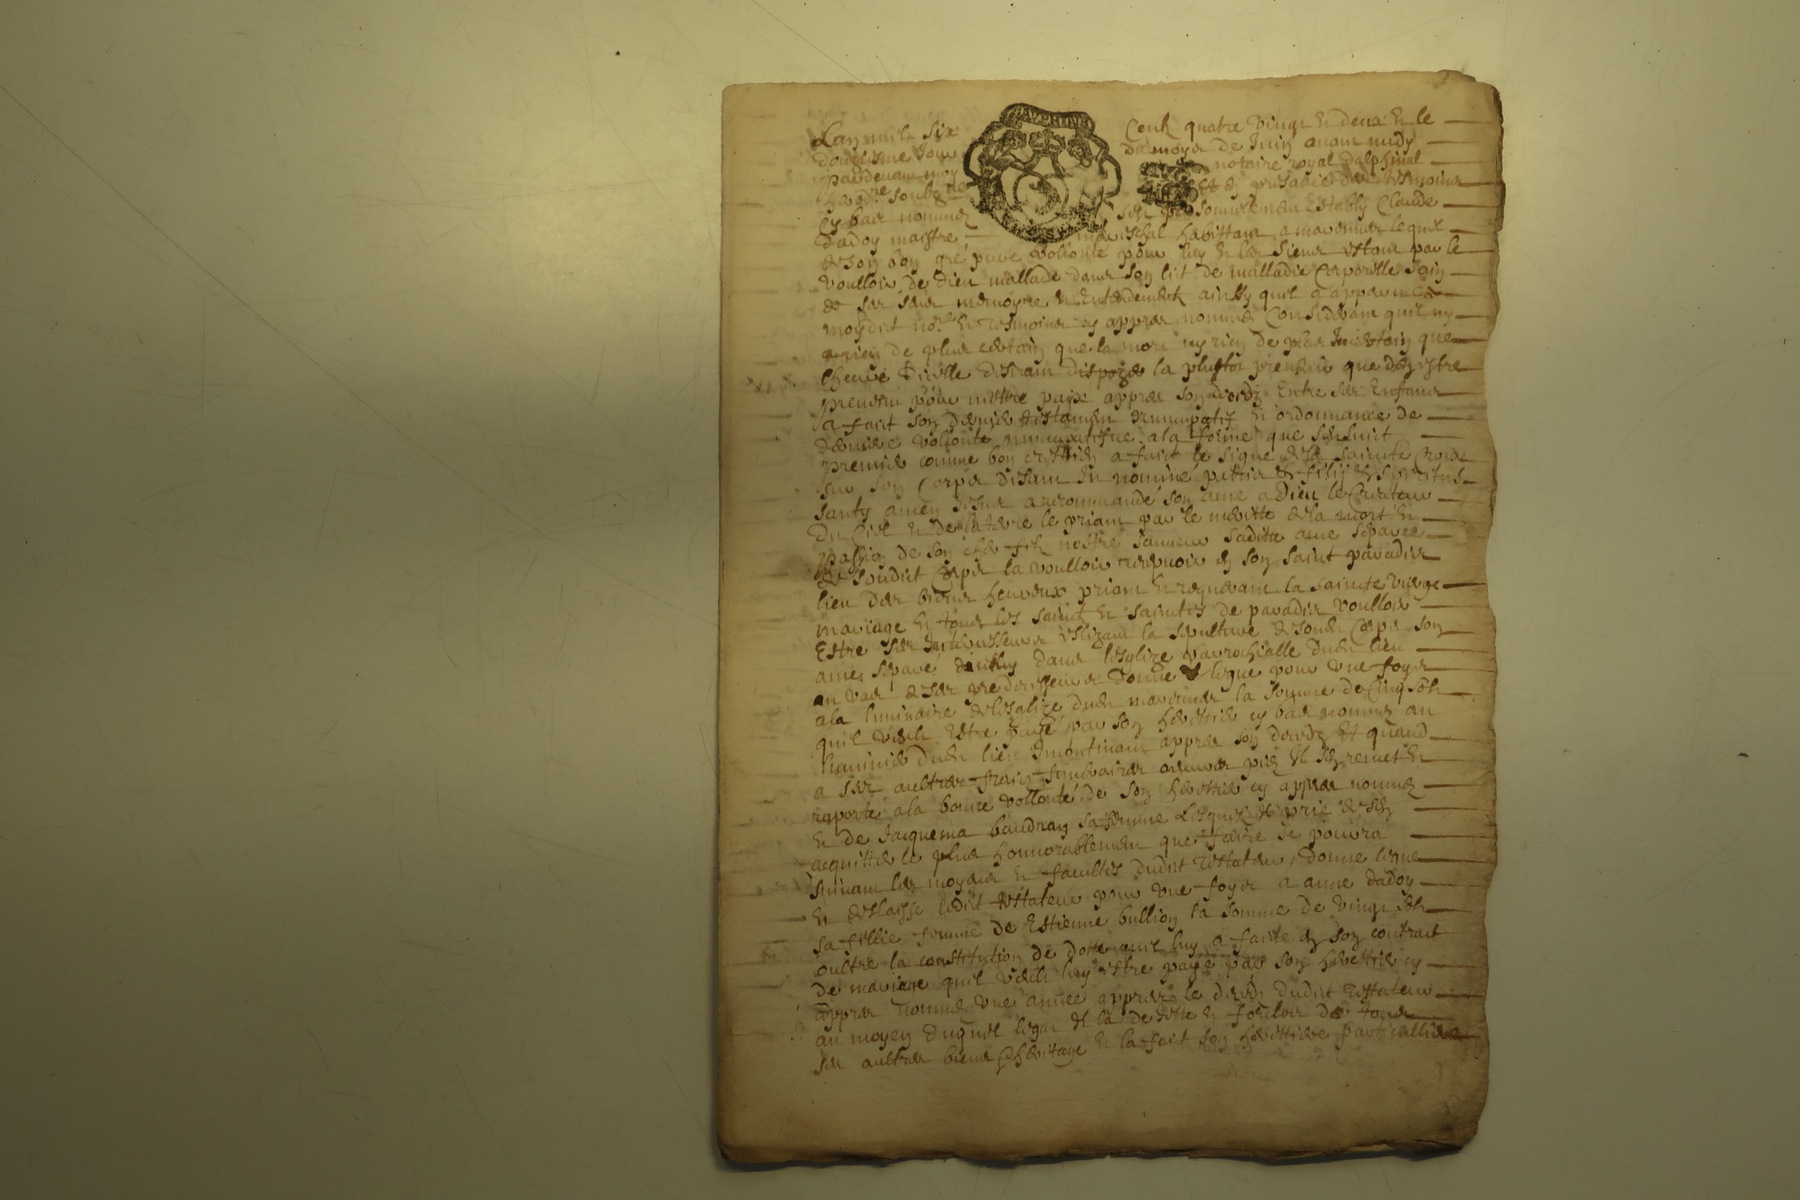 Lan mil six Cents quatre vingt et deux et le
douziesme jour du moys de Juin avant midy
pardevant moy notaire royal dalphinal
hered.re soubz.né et en presance des tesmoins
cy bas nommez sest personnellement estably Claude
dadoy maistre mareschal habittant a
de son bon gré pure vollonté pour luy et les siens estant par le
voulloir de dieu mallade dans son lict de malladie corporelle sain
de ses sens memoyre et entendement ainsy quil a apparu a
moydict no.re et tesmoins cy appres nommez Considerant quil ny
a rien de plus certain que la mort ny rien de plus incertain que
lheure dicelle disposer la plustot que destre
prevenu pour mettre paix appres son decedz entre ses enfans
a faict son dernier testament nuncupatif et ordonnance de
derniere vollonté nuncupatifve a la forme que sensuict
premier comme bon crestien a faict le signe de la saincte Croix
sur son Corps disant In nomine patris et filij et spiritus
santy amen Jesus a recommandé son ame a Dieu le Createur
du Ciel et de la terre le priant par le meritte de la mort et
passion de son cher filz nostre sauveur saditte ame separée
de sondict Corps la voulloir recevoir en son saint paradis
lieu des biens heureux priant et requerant la saincte vierge
mariage et tous les saincts et sainctes de paradis voulloir
estre ses intercesseurs eslizant la sepulture de sondit Corps son
ame separé dicelluy dans lesglize parrochialle dudit lieu
au vas de ses predecesseurs donne legue pour une foys
a la luminaire de lesglize dudit la somme de Cinq solz
quil veult estre payé par son herettier cy bas nommé au
dudit lieu incontinant appres son decedz Et quand
a ses aultres frais funeraires œuvres pies Il sen remet et
raporte a la bonne vollonté de son herettier cy appres nommé
et de Jacquema baudran sa femme lesquels il prie de sen
acquitter le plus honnorablement que faire se pourra
suivant les moyens et facultés dudict testateur, donne legue
et delaisse ledict testateur pour une foys a anne dadoy
sa fillie femme de Estienne bullion la somme de vingt solz
oultre la constitution de dotte quil luy a faite en son contrait
de mariage quil veult luy estre payé par son herettier cy
appres nommé une année appres le decedz dudict testateur
au moyen duquel legat Il la dejette et forclos de tous
ses aultres biens et heritage et la faict son herettiere particulliere